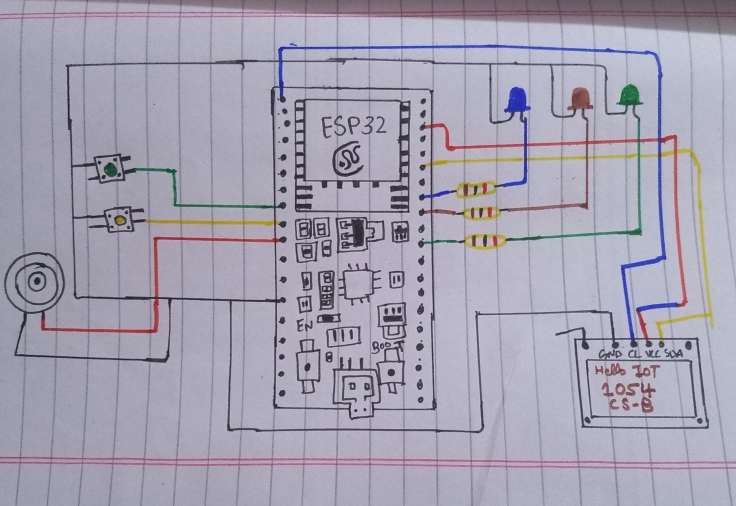 ESP32
EN
BOOT
GND CL VCC SDA
Hello IoT
1054
CS-B